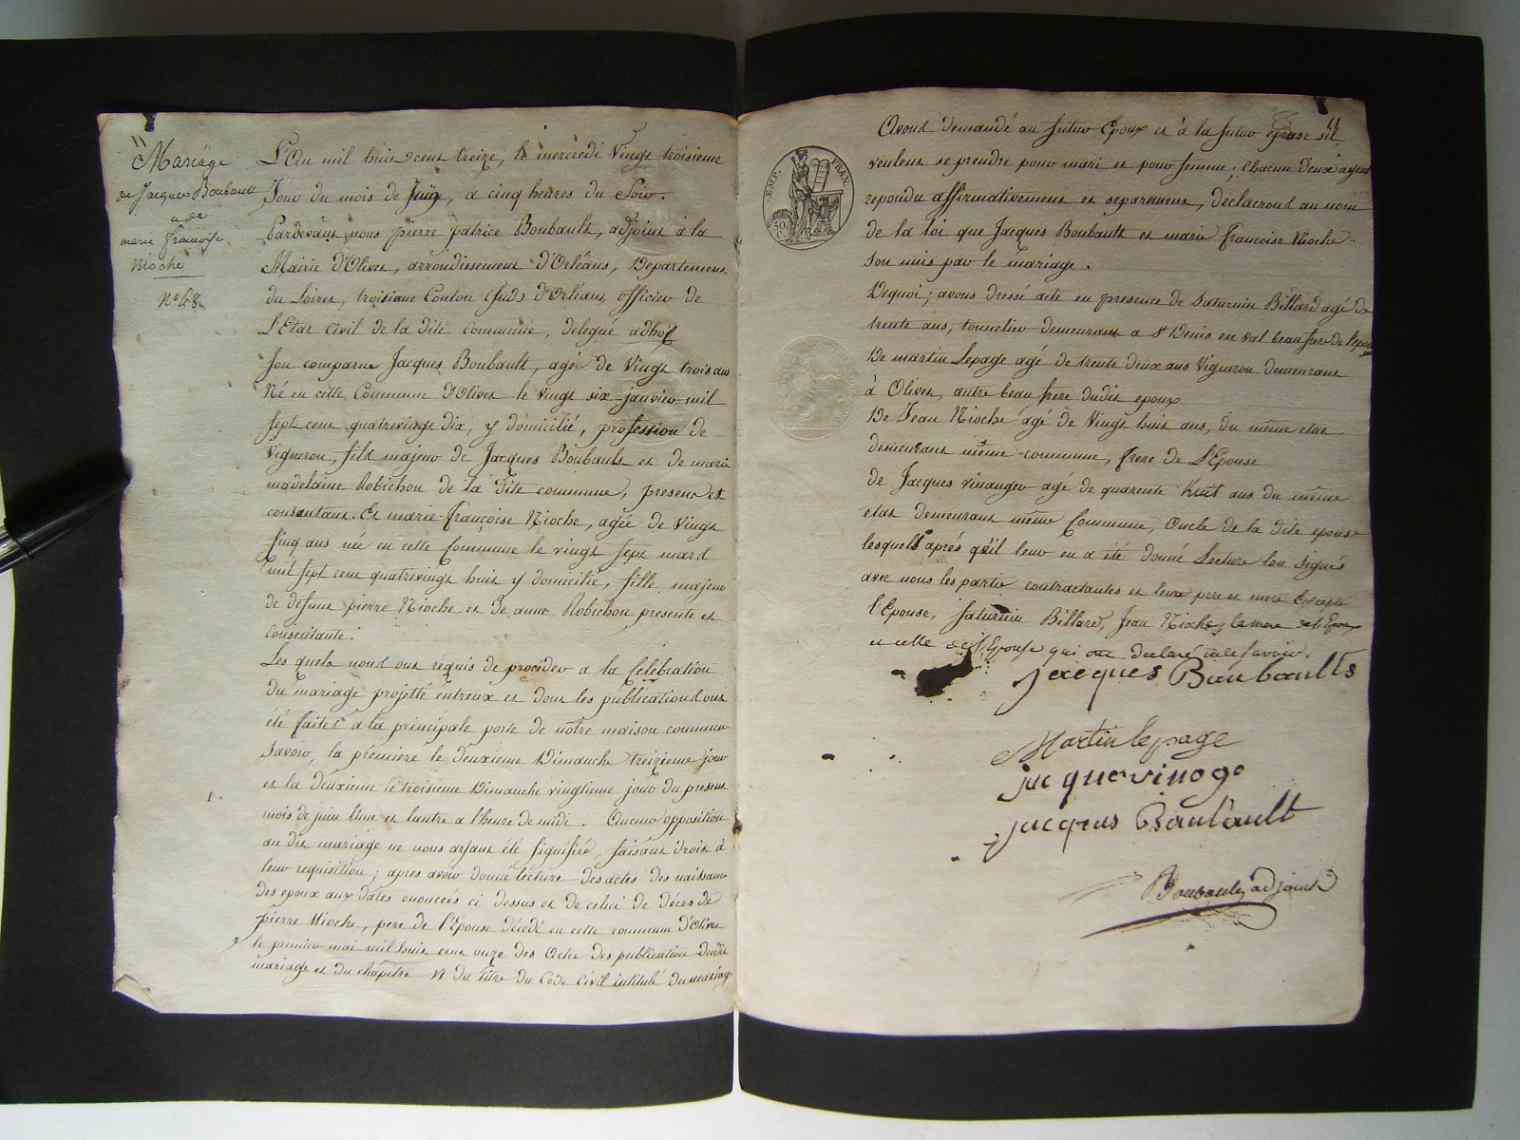 Mariage
de Jacques Boubault
et de
marie françoise
Nioche
No 48
L'An mil huit cent treize, le mercredi Vingt troisieme
Jour du mois de Juin, a cinq heures du Soir.
Pardevant nous pierre patrice Boubault, adjoint à la
Mairie d'Olivet, arrondissement d'Orléans, Departement
du Loiret, troisieme Canton (sud) d'Orleans officier de
L'Etat civil de la dite commune, delegué adhoc
Son comparus Jacques Boubault, agé de Vingt trois ans
Né en cette Commune d'Olivet le vingt six janvier mil
Sept cent quatrevingt dix, y domicilié, profession de
Vigneron, fils majeur de Jacques Boubault et de marie
madelaine Robichon de la dite commune, presens et
consentans. Et marie françoise Nioche, agée de Vingt
Cinq ans née en cette Commune le vingt sept mars
mil sept cent quatrevingt huit y domiciliée, fille majeure
de defunt pierre Nioche et de anne Robichon presente et
consentante.
Les quels nous ont requis de proceder a la Celebration
du mariage projetté entreux et dont les publications ont
été faites a la principale porte de notre maison commune
Savoir, la premiere le deuxieme Dimanche treizieme jour
et la deuxieme le troisieme Dimanche vingtieme jour du present
mois de juin l'une et lautre a l'heure de midi. Aucune opposition
au dit mariage ne nous ayant été signifiée, faisant droit à
leur requisition; apres avoir donné lecture des actes de naissance
des epoux aux dates enoncées ci dessus et de celui de décès de
pierre Nioche, pere de l'Epouse décédé en cette commune d'Olivet
le premier mai mil huit cent onze des Actes des publication dudit
mariage et du chapitre VI du titre du Code Civil intitulé du mariage
11
EMP. FRAN.
Avons demandé au futur Epoux et à la future epouse sil
veulent se prendre pour mari et pour femme; chacun deux ayant
repondu affirmativement et separement, declarons au nom
de la loi que Jacques Boubault et marie françoise Nioche
Son unis par le mariage.
Dequoi; avons dressé acte en presence de Saturnin Billard agé de
trente ans, tonnelier demeurant a St Denis en val beau frere de l'epoux
De martin Lepage agé de trente deux ans Vigneron demeurant
à Olivet, autre beau frere dudit epoux
De Jean Nioche agé de Vingt huit ans, du même etat
demeurant même commune, frere de L'Epouse
de Jacques vinauger agé de quarente huit ans du même
etat demeurant même Commune, Oncle de la dite epouse
lesquells aprés qu'il leur en a été donné Lecture lon signés
avec nous les partie contractantes et leurs pere et mere Excepté
l'Epouse, Saturnin Billard, Jean Nioche, la mere de l'Epoux
et celle de l'Epouse qui ont declaré ne le savoir.
jacques Baubaults
Martin lepage
jacque vinogé
jacques Baubault
Boubault adjoint